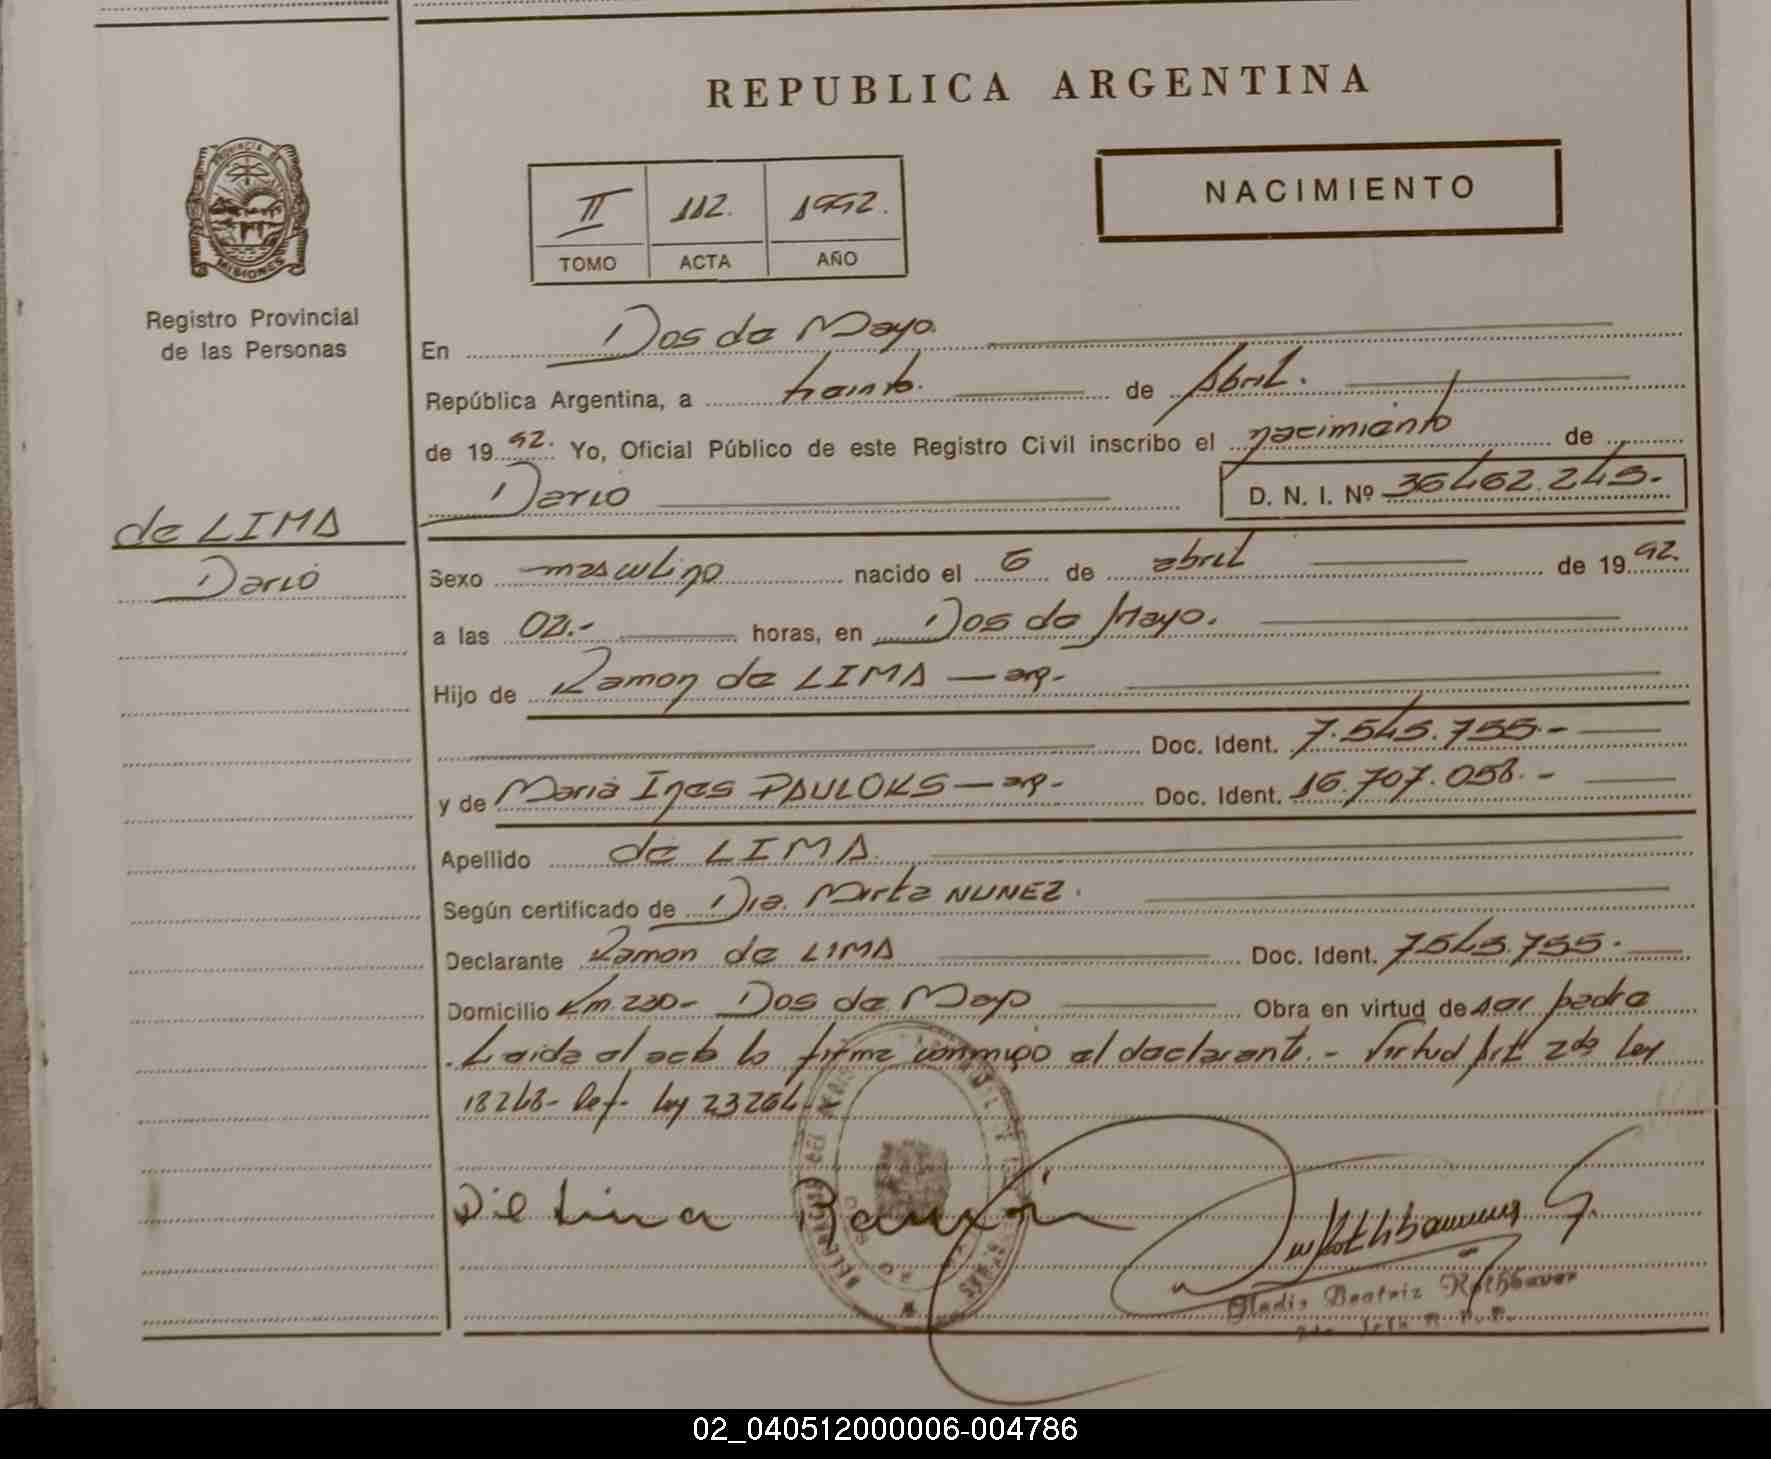 REPUBLICA ARGENTINA
NACIMIENTO
II 112. 1992.
TOMO ACTA AÑO
PROVINCIA DE
MISIONES
Registro Provincial
de las Personas
de LIMA
Dario
En Dos de Mayo.
República Argentina, a treinta. de Abril.
de 1992. Yo, Oficial Público de este Registro Civil inscribo el nacimiento de
Dario D. N. I. Nº 36.462.245.-
Sexo masculino nacido el 6 de abril de 1992.
a las 02.- horas, en Dos de Mayo.
Hijo de Ramon de LIMA — arg.-
Doc. Ident. 7.545.755.-
y de Maria Ines PAULOKS — arg.- Doc. Ident. 16.707.058.-
Apellido de LIMA.
Según certificado de Dra. Mirta NUNEZ.
Declarante Ramon de LIMA Doc. Ident. 7.545.755.-
Domicilio Km. 230- Dos de Mayo Obra en virtud de ser padre
Leida el acta la firma conmigo el declarante.- Virtud Art 2do ley
18248- Ref- ley 23264-
Rothbauer G.
Gladis Beatriz Rothbauer
02_040512000006-004786